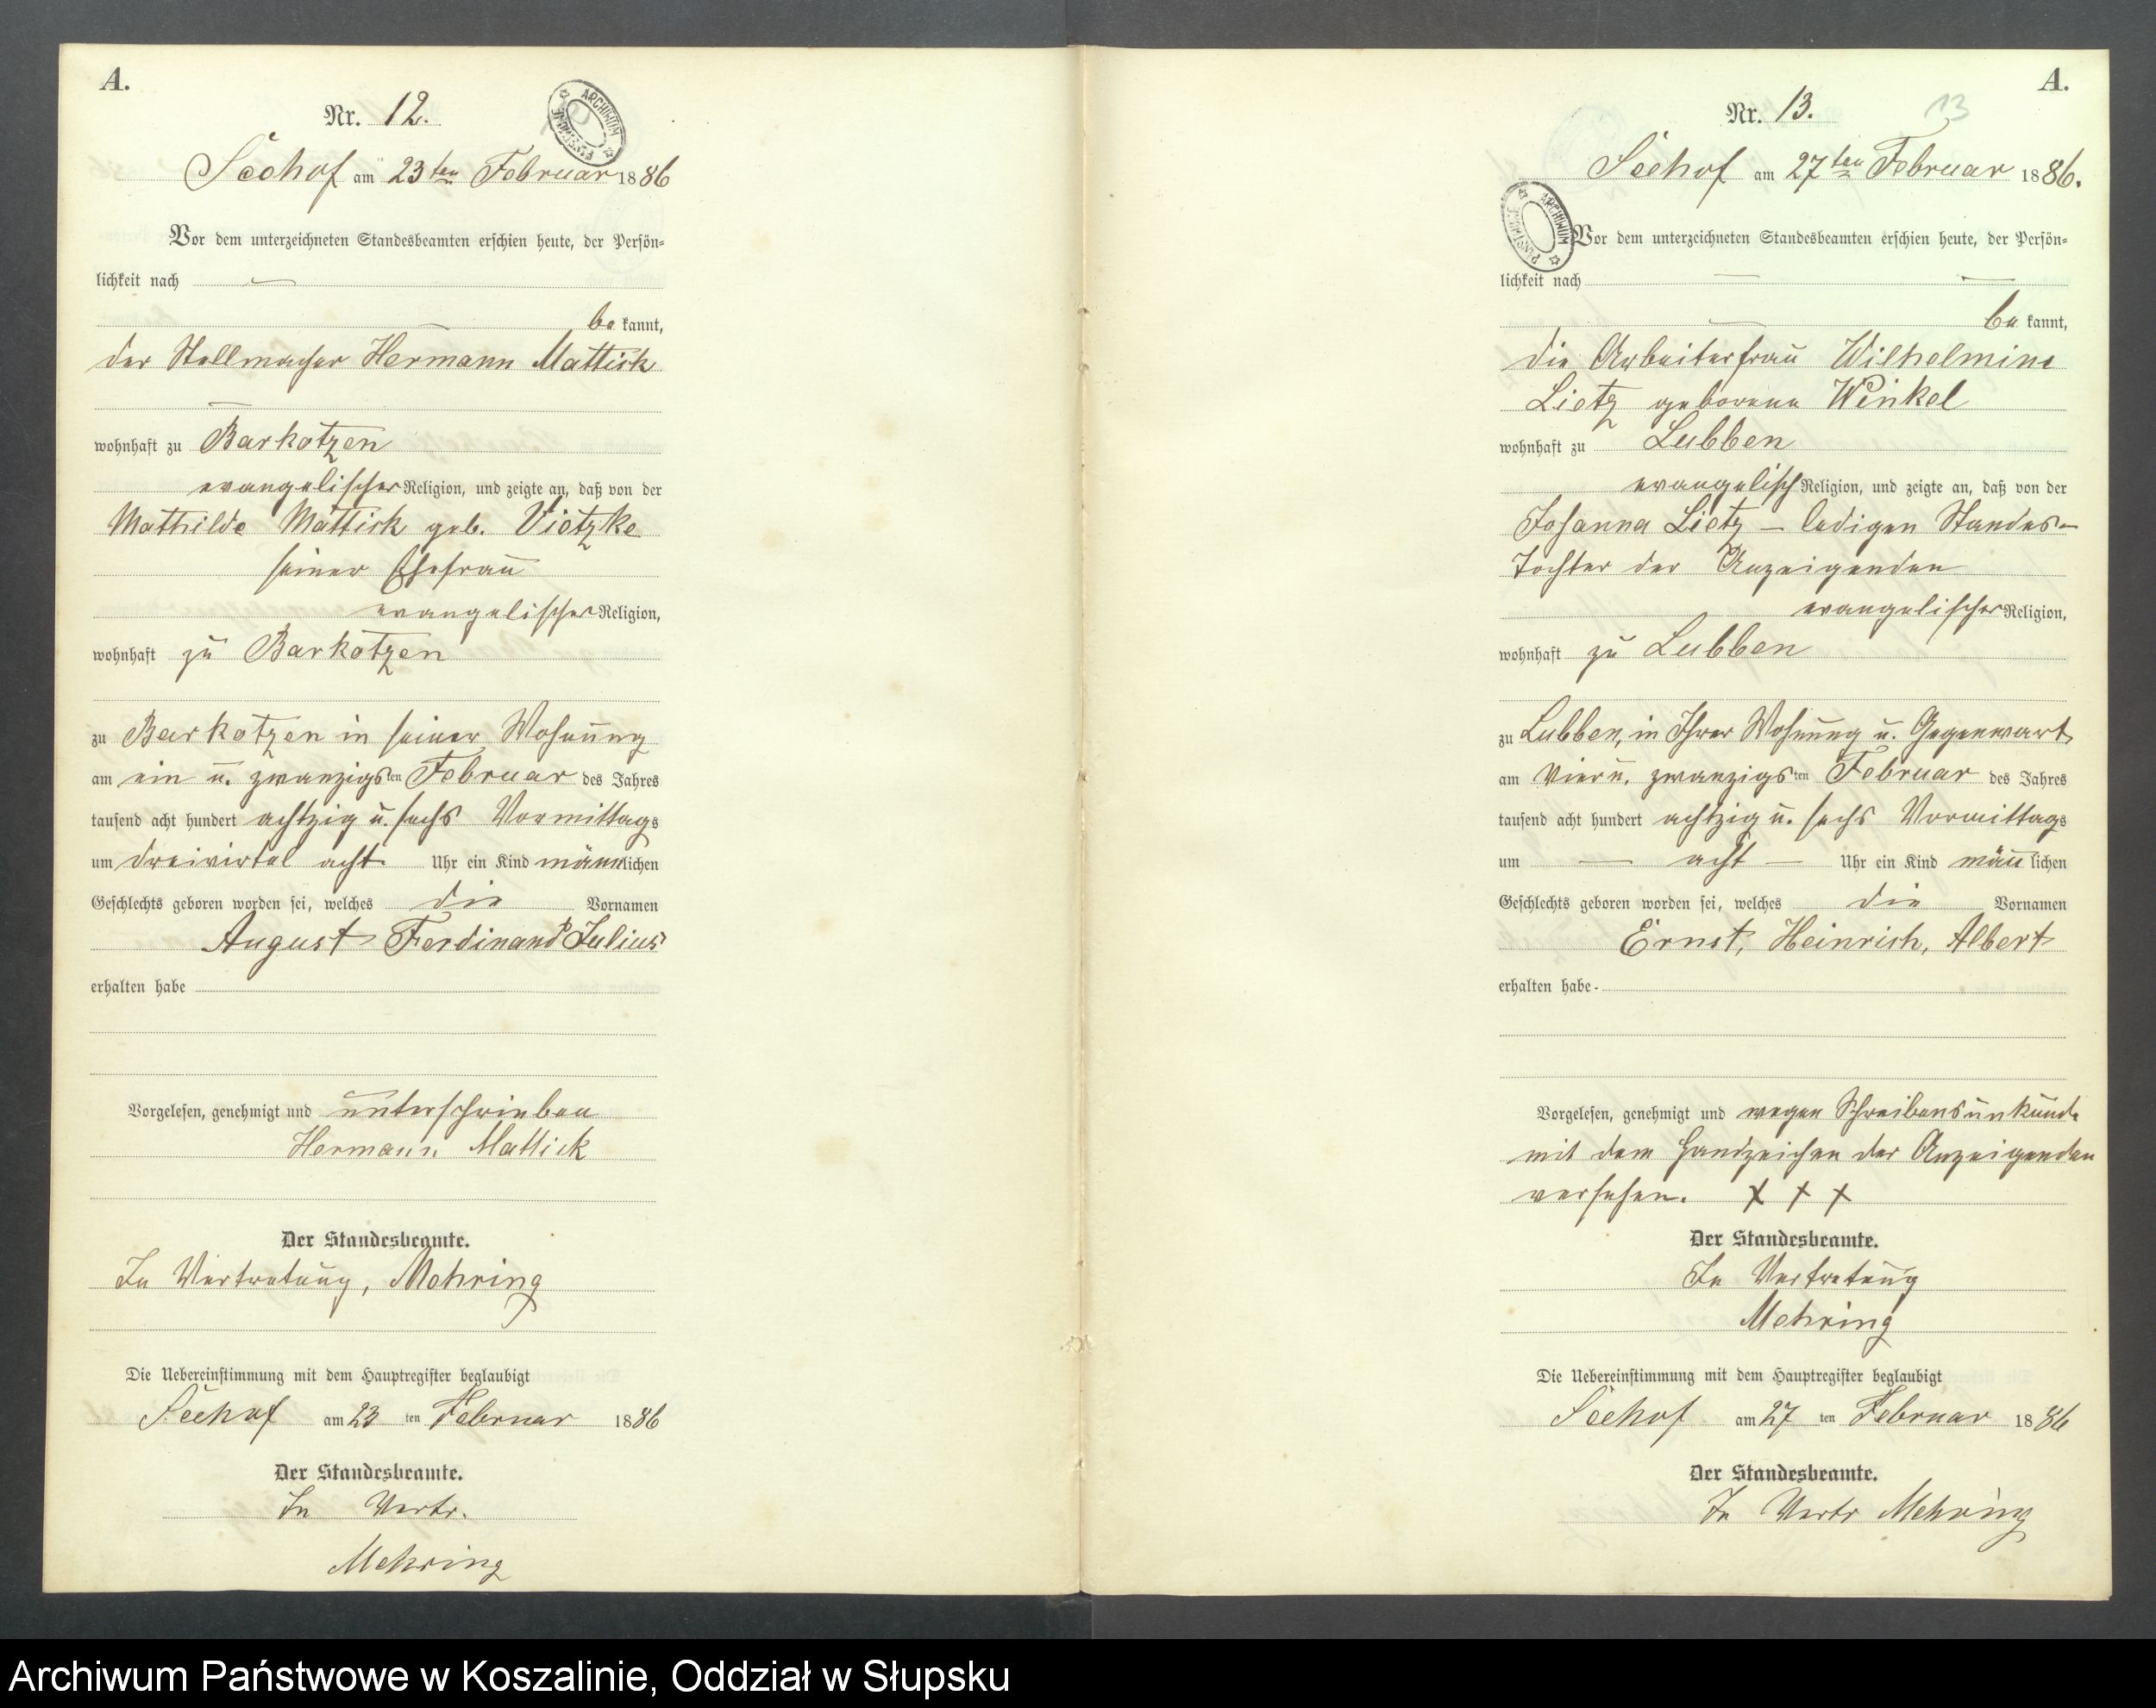 A.
Nr. 12.
ARCHIWUM PAŃSTWOWE
Seehof am 23ten Februar 1886
Vor dem unterzeichneten Standesbeamten erschien heute, der Persön-
lichkeit nach
be kannt,
der Stellmacher Hermann Mattick
wohnhaft zu Barkotzen
evangelischer Religion, und zeigte an, daß von der
Mathilde Mattick geb. Vietzke
seiner Ehefrau
evangelischer Religion,
wohnhaft zu Barkotzen
zu Barkotzen in seiner Wohnung
am ein u. zwanzigsten Februar des Jahres
tausend acht hundert achtzig u. sechs Vormittags
um dreivirtel acht Uhr ein Kind männlichen
Geschlechts geboren worden sei, welches die Vornamen
August Ferdinand Julius
erhalten habe
Vorgelesen, genehmigt und unterschrieben
Hermann Mattick
Der Standesbeamte.
In Vertretung, Mehring
Die Uebereinstimmung mit dem Hauptregister beglaubigt
Seehof am 23 ten Februar 1886
Der Standesbeamte.
In Vertr.
Mehring
A.
Nr. 13.
13
Seehof am 27ten Februar 1886.
ARCHIWUM PAŃSTWOWE
Vor dem unterzeichneten Standesbeamten erschien heute, der Persön-
lichkeit nach
be kannt,
die Arbeiterfrau Wilhelmine
Lietz geborene Winkel
wohnhaft zu Lubben
evangelisch Religion, und zeigte an, daß von der
Johanna Lietz – ledigen Standes –
Tochter der Anzeigenden
evangelischer Religion,
wohnhaft zu Lubben
zu Lubben, in Ihrer Wohnung u. Gegenwart
am Vier u. zwanzigsten Februar des Jahres
tausend acht hundert achtzig u. sechs Vormittags
um — acht — Uhr ein Kind männlichen
Geschlechts geboren worden sei, welches die Vornamen
Ernst, Heinrich, Albert
erhalten habe.
Vorgelesen, genehmigt und wegen Schreibensunkunde
mit dem Handzeichen der Anzeigenden
versehen. X X X
Der Standesbeamte.
In Vertretung
Mehring
Die Uebereinstimmung mit dem Hauptregister beglaubigt
Seehof am 27 ten Februar 1886
Der Standesbeamte.
In Vertr Mehring
Archiwum Państwowe w Koszalinie, Oddział w Słupsku